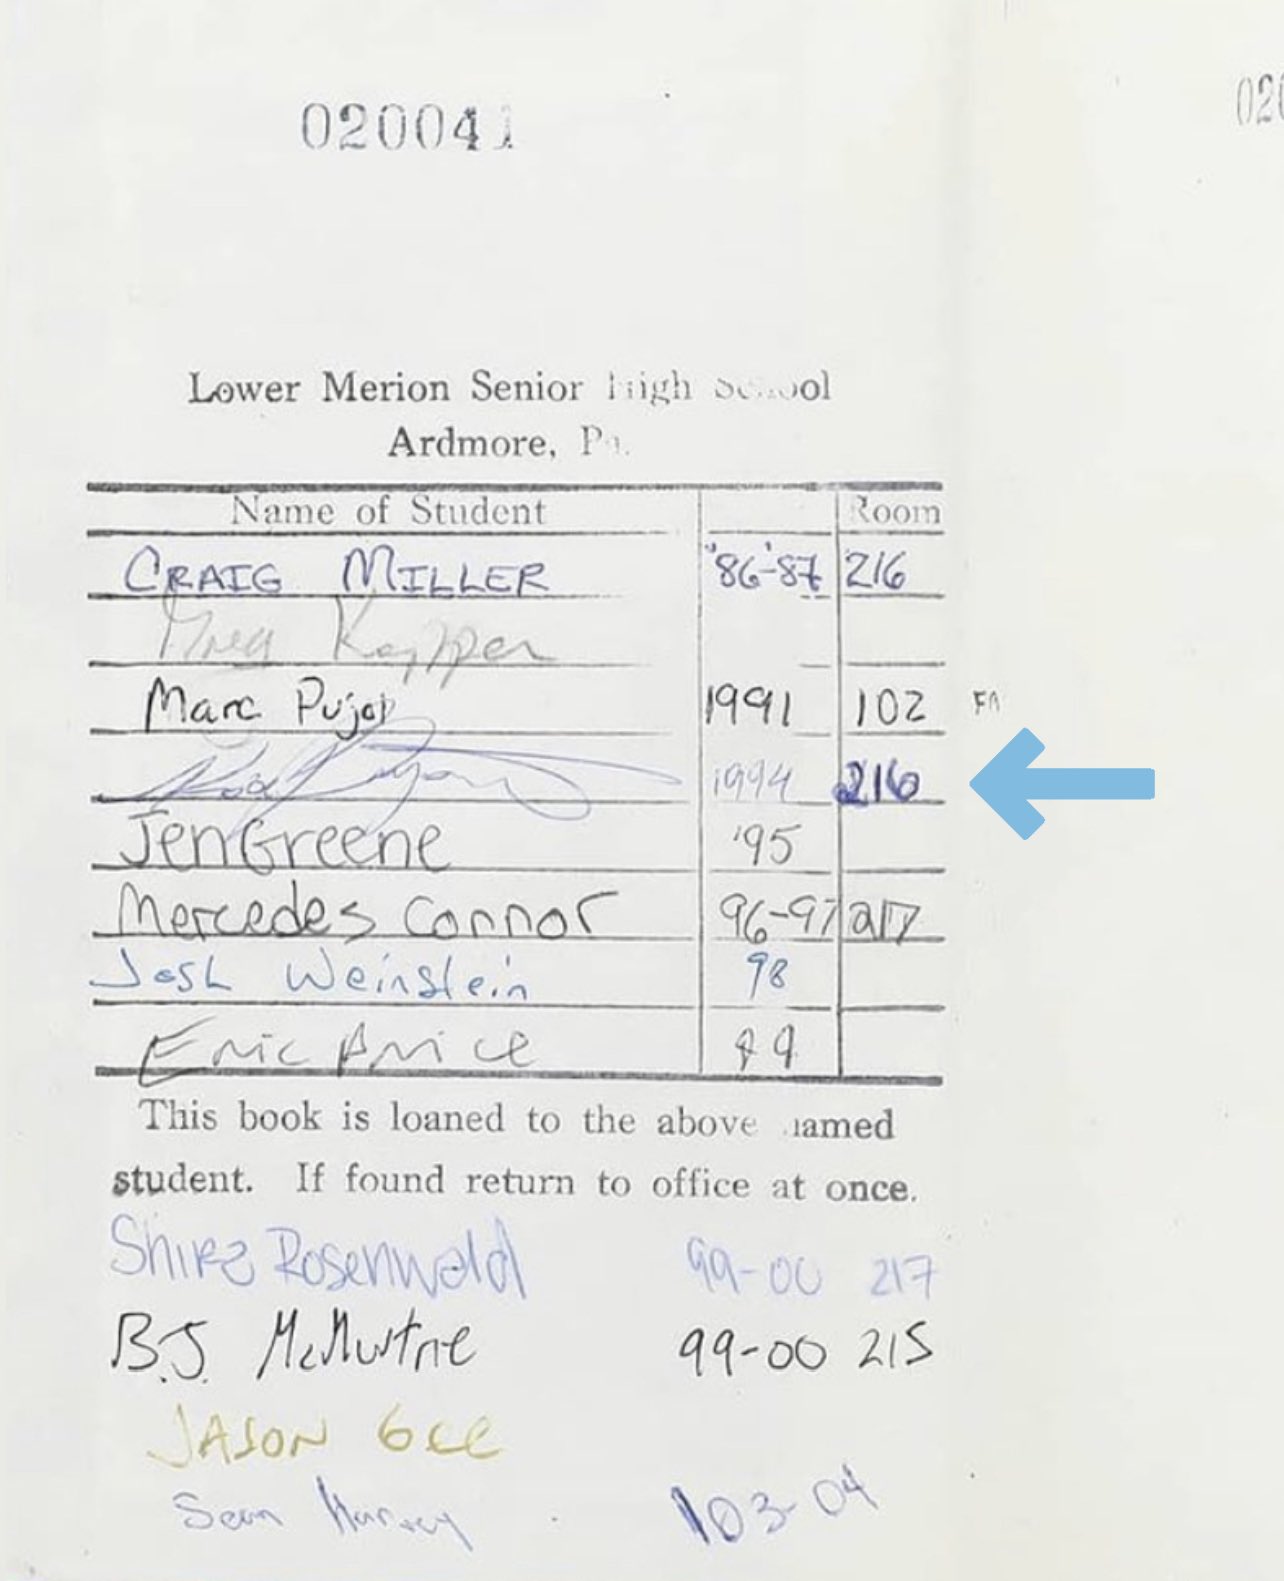 020041
020
Lower Merion Senior High School
Ardmore, Pa.
Name of Student Room
CRAIG MILLER '86-'87 216
Greg Kapper
Marc Pujol 1991 102
1994 216
Jen Greene '95
Mercedes Connor 96-97 217
Josh Weinstein 98
Eric Price 99
This book is loaned to the above named
student. If found return to office at once.
Shira Rosenwald 99-00 217
B.J. McMurtrie 99-00 215
JASON GEE
Sean Harvey 103-04